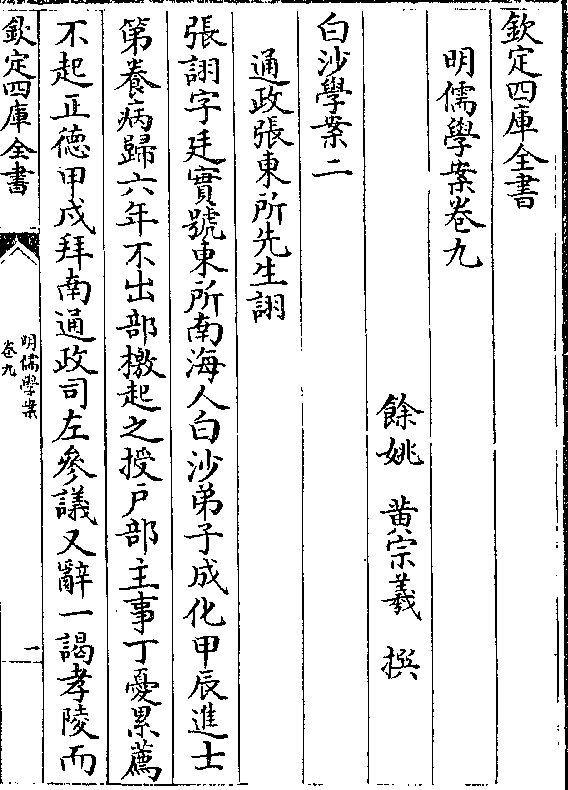 欽定四庫全書
明儒學案卷九
餘姚 黃宗羲 撰
白沙學案二
通政張東所先生詡
張詡字廷實號東所南海人白沙弟子成化甲辰進士
第養病歸六年不出部檄起之授戶部主事丁憂累薦
不起正德甲戌拜南通政司左參議又辭一謁孝陵而
欽定四庫全書
明儒學案
卷九
一